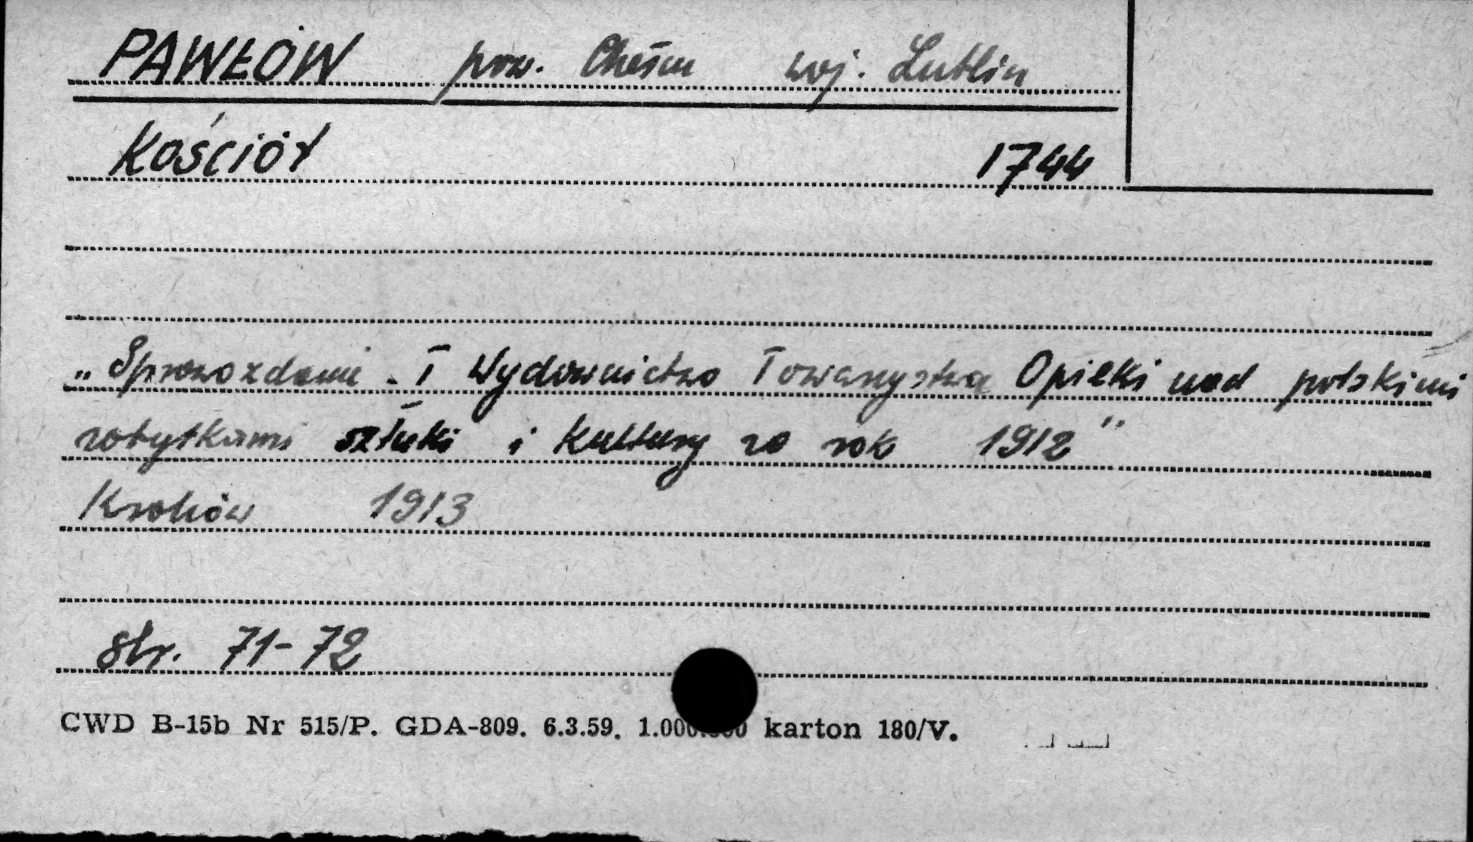 PAWŁÓW pow. Chełm woj. Lublin
Kościół 1744
„Sprawozdanie - I Wydawnictwo Towarzystwa Opieki nad polskimi
zabytkami sztuki i kultury za rok 1912"
Kraków 1913
str. 71-72
CWD B-15b Nr 515/P. GDA-809. 6.3.59. 1.000.000 karton 180/V.